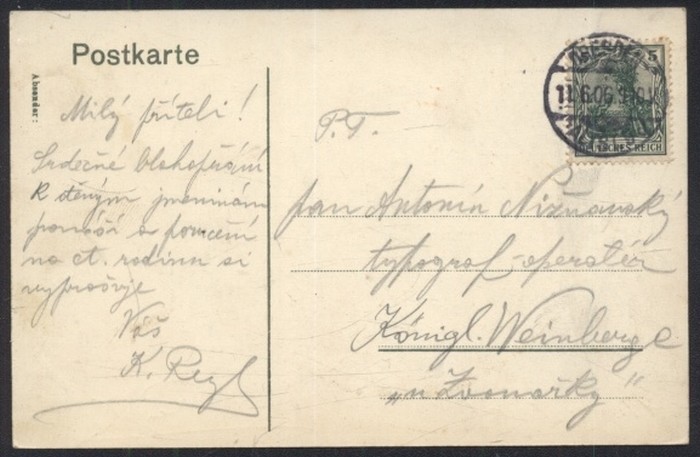 Postkarte
Absender:
Milý příteli!
Srdečné blahopřání
k ctěným jmeninám
a
na ct. rodinu si
vyprošuje
Váš
K.
P.T.
pan Antonín Nižnanský
typograf-operatér
Königl. Weinberge
„u Zvonařky"
DRESDEN
11.6.06
5
DEUTSCHES REICH